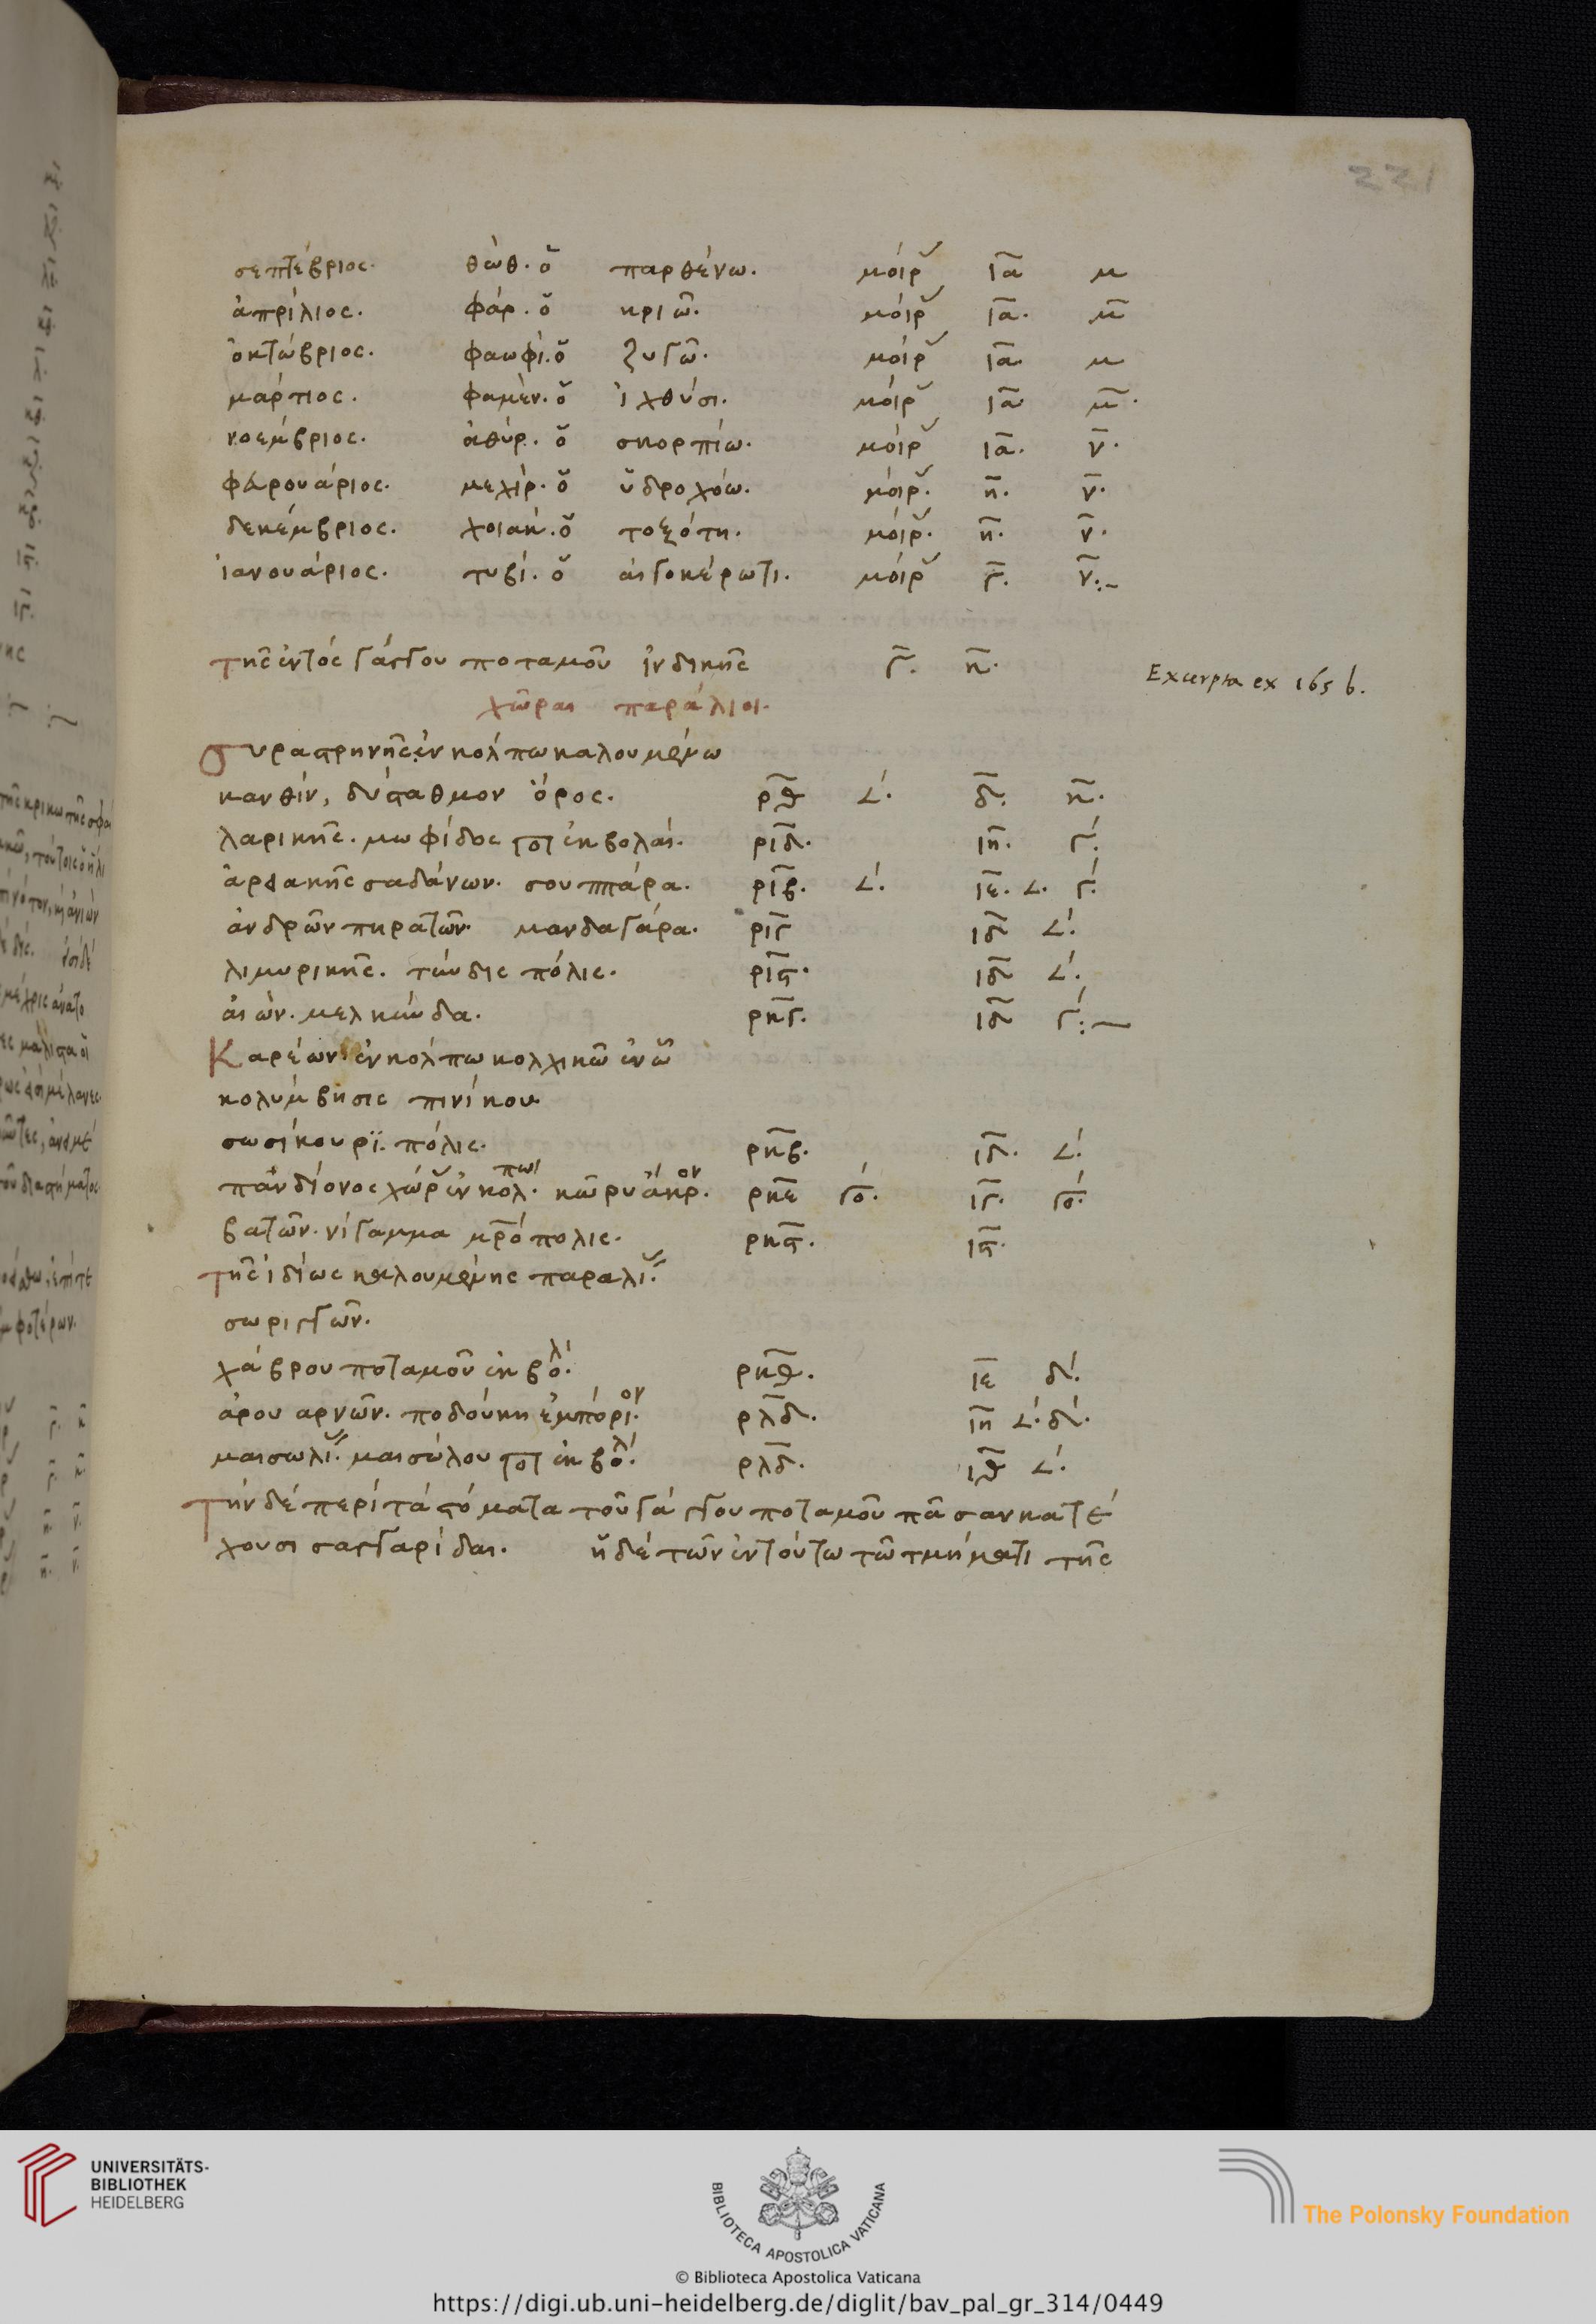 221
σεπτέβριος. θὼθ. ὅ παρθένω. μοίρ ια μ
ἀπρίλιος. φάρ. ὅ κριῶ. μοίρ ια. μ
ὀκτώβριος. φαωφί. ὅ ζυγῶ. μοίρ ια. μ
μάρτιος. φαμὲν. ὅ ἰχθύσι. μοίρ ια μ.
νοέμβριος. ἀθύρ. ὅ σκορπίω. μοίρ ια. ν.
φερουάριος. μεχὶρ. ὅ ὑδροχόω. μοίρ. η. ν.
δεκέμβριος. χοιάκ. ὅ τοξότη. μοίρ. η. ν.
ἰανουάριος. τυβί. ὅ αἰγοκέρωτι. μοίρ γ. ν.
τῆς ἐντὸς γάγγου ποταμοῦ ἰνδικῆς γ. η.
Excerpta ex 165 b.
χῶραι παράλιοι.
συραστρηνῆς. ἐν κόλπω καλουμένω
κανθίν, δύσταθμον ὅρος. ρθ ∠. δ. η.
λαρικῆς. μωφίδος ποτ ἐκβολάι. ριδ. ιη. γ.
ἀρακῆς σαδάνων. σουππάρα. ριβ. ∠. ιε. ∠. γ.
ἀνδρῶν πηρατῶν. μανδαγάρα. ριγ ιδ ∠.
λιμυρικῆς. τύνδις πόλις. ρις. ιδ ∠.
ἀιὼν. μελκύνδα. ρκγ. ιδ γ.
Καρέων ἐν κόλπω κολχικῶ ἐν ὧ
κολύμβησις πινίκου
σωσίκουρϊ. πόλις. ρκβ. ιδ. ∠.
πανδίονος χώρ ἐν κολπωι. κῶρυ άκρον. ρκε γο. ιγ. γο.
βατῶν. νίγαμμα μρόπολις. ρκς. ις.
τῆς ἰδίως καλουμένης παραλί.
σωριγγῶν.
χάβρου ποταμοῦ ἐκβολί. ρκθ. ιε δ.
ἀρουαρνῶν. ποδούκη ἐμπόριον. ρλδ. ιη ∠. δ.
μαισωλί. μαισώλου ποτ ἐκβολί. ρλδ. ιθ ∠.
Τὴν δὲ περὶ τὰ στόματα τοῦ γάγγου ποταμοῦ πᾶσαν κατέ
χουσι γαγγαρίδαι. ἡ δὲ τῶν ἐν τούτω τῶ τμήματι τῆς
UNIVERSITÄTS-
BIBLIOTHEK
HEIDELBERG
BIBLIOTECA APOSTOLICA VATICANA
The Polonsky Foundation
© Biblioteca Apostolica Vaticana
https://digi.ub.uni-heidelberg.de/diglit/bav_pal_gr_314/0449